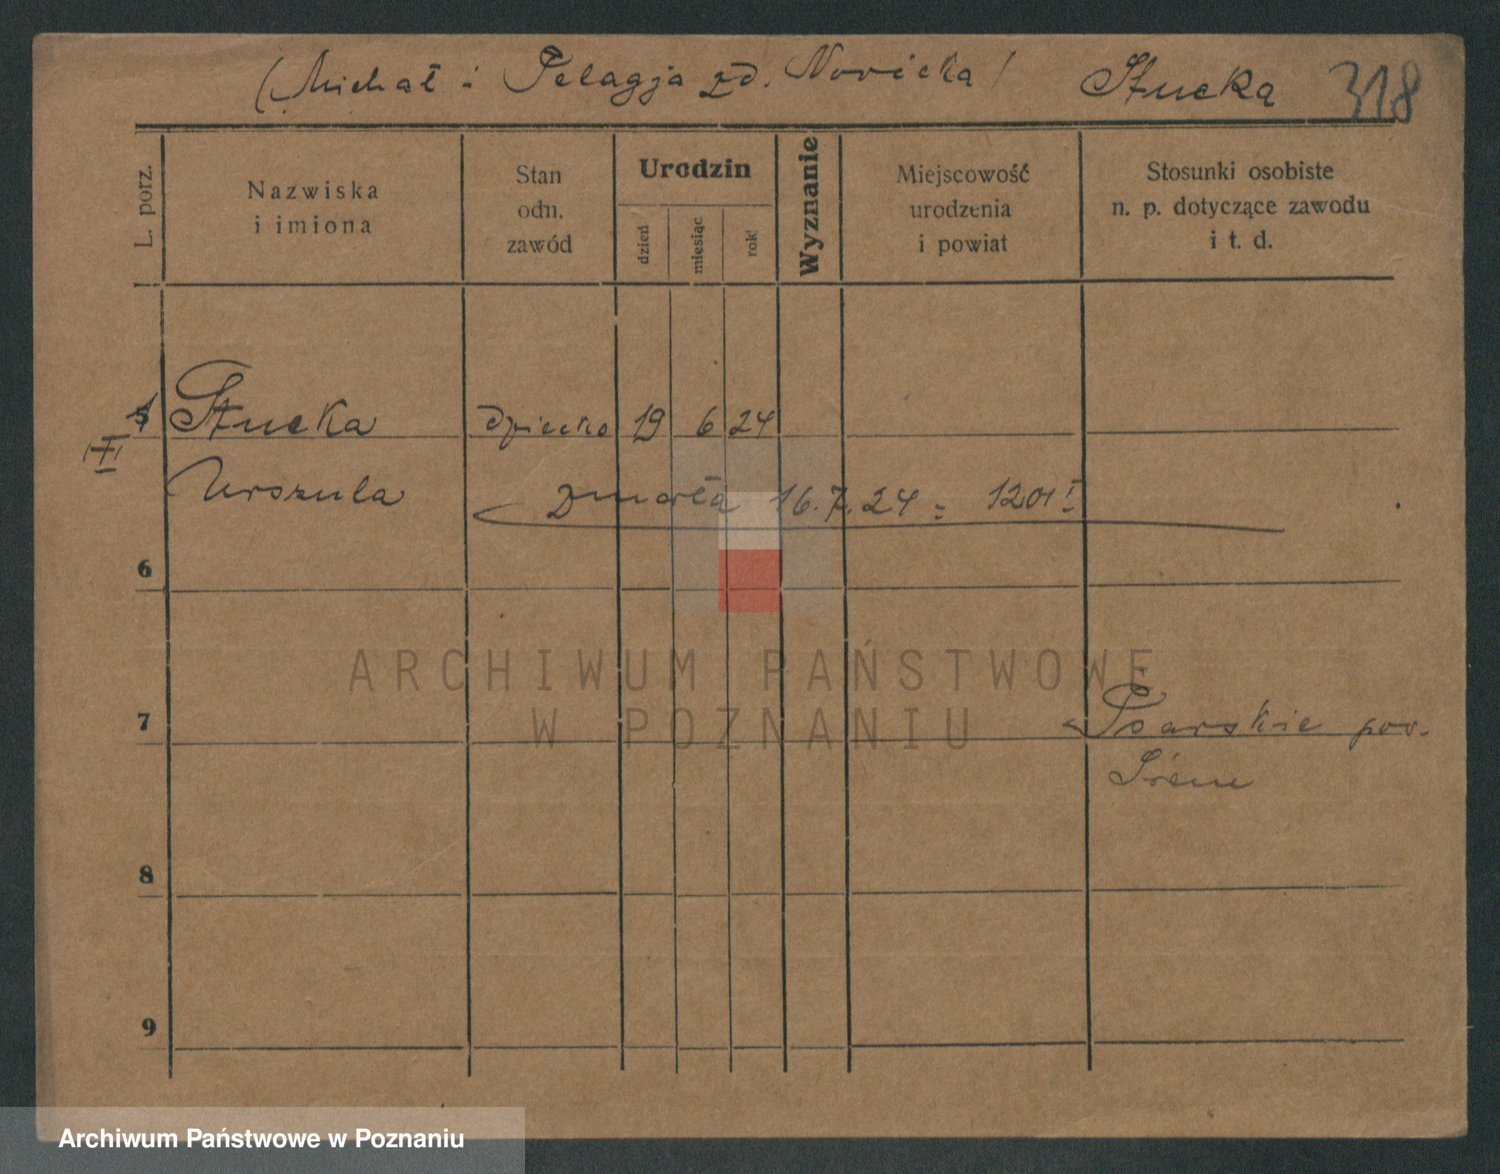 (Michał i Pelagja zd. Nowicka) Stucka 318
L. porz.
Nazwiska
i imiona
Stan
odn.
zawód
Urodzin
dzień
miesiąc
rok
Wyznanie
Miejscowość
urodzenia
i powiat
Stosunki osobiste
n. p. dotyczące zawodu
i t. d.
Stucka dziecko 19 6 24
Urszula
zmarła 16.7.24 = 1201 I
6
ARCHIWUM PAŃSTWOWE
W POZNANIU
7
Psarskie pow.
Śrem
8
9
Archiwum Państwowe w Poznaniu